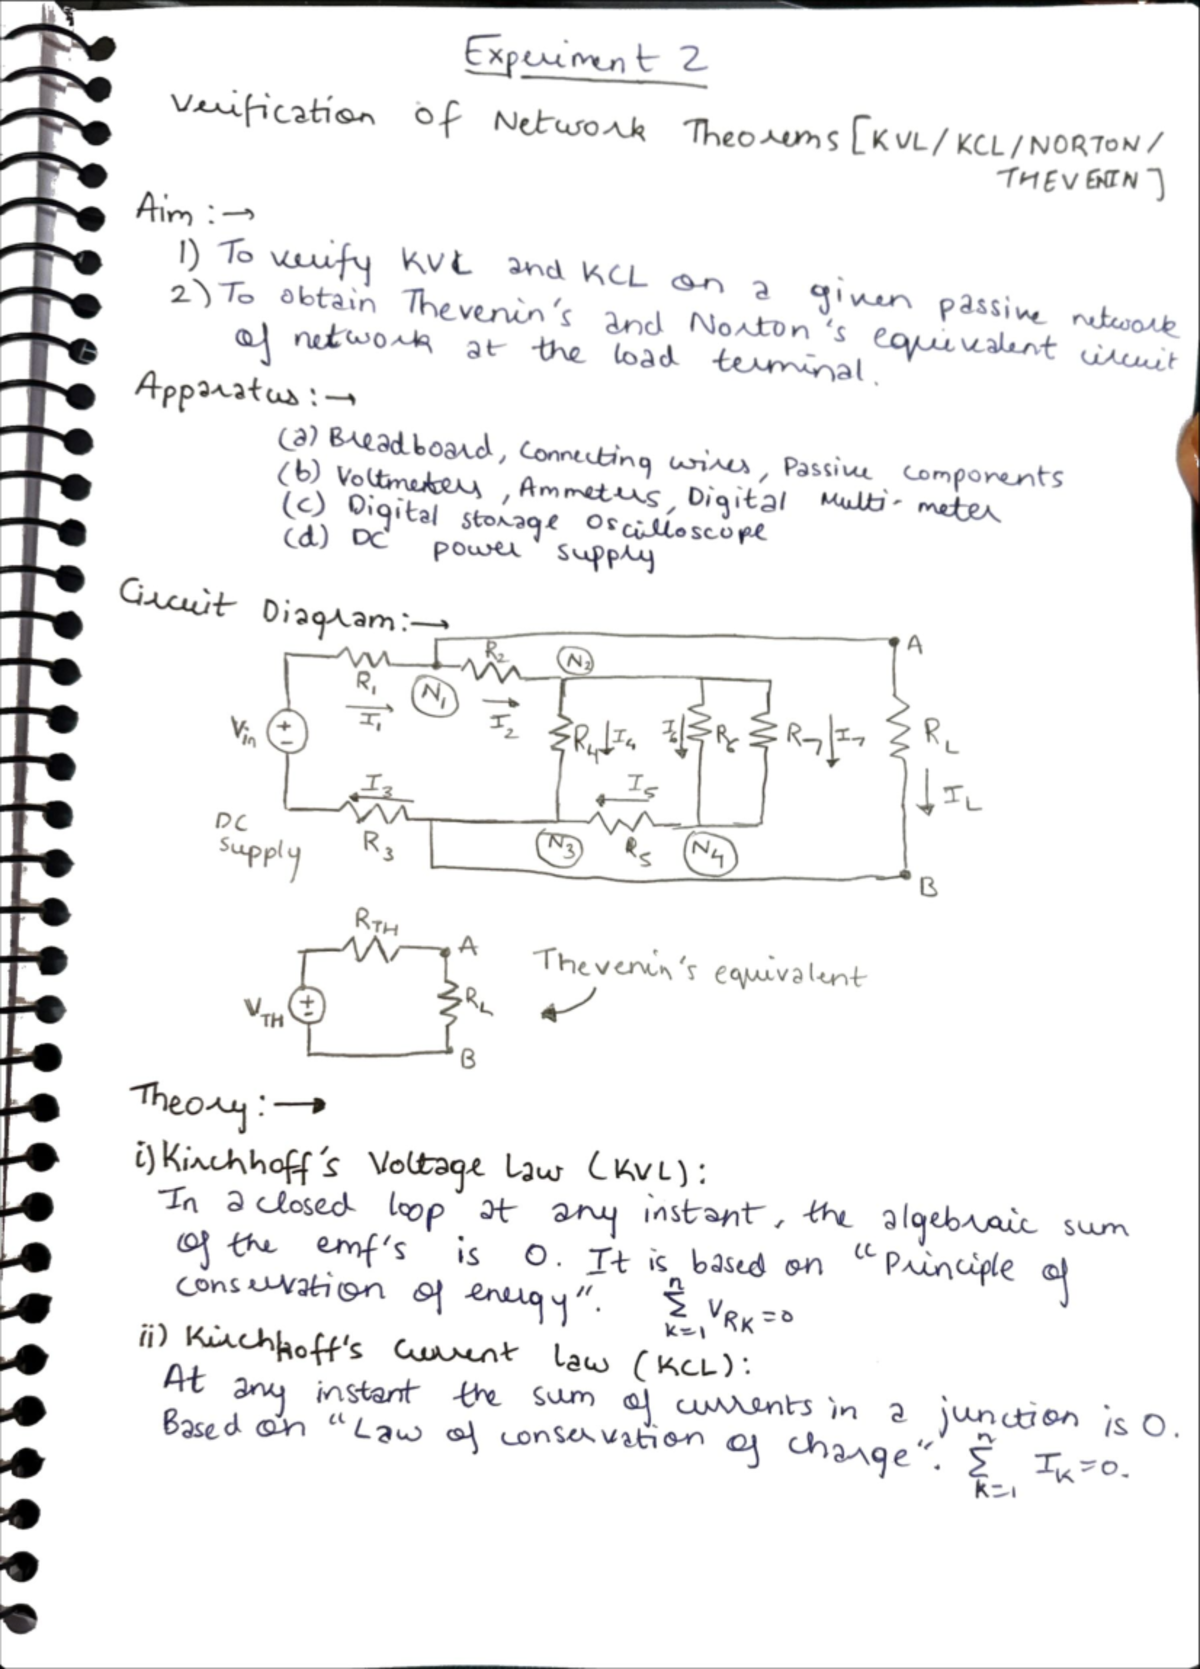 Experiment 2
Verification of Network Theorems [KVL/KCL/NORTON/
THEVENIN]
Aim :→
1) To verify KVL and KCL on a given passive network
2) To obtain Thevenin's and Norton's equivalent circuit
of network at the load terminal.
Apparatus :→
(a) Breadboard, Connecting wires, Passive components
(b) Voltmeters, Ammeters, Digital Multi-meter
(c) Digital storage Oscilloscope
(d) DC power supply
Circuit Diagram :→
A
R2
N2
R1
N1
I1
I2
Vin
R4 I4
I6 R6
R7 I7
RL
IL
I3
I5
DC
supply
R3
N3
R5
N4
B
RTH
A
Thevenin's equivalent
VTH
RL
B
Theory :→
i) Kirchhoff's Voltage Law (KVL):
In a closed loop at any instant, the algebraic sum
of the emf's is 0. It is based on "Principle of
conservation of energy". n∑k=1 VRK = 0
ii) Kirchhoff's Current Law (KCL):
At any instant the sum of currents in a junction is 0.
Based on "Law of conservation of charge". n∑k=1 IK = 0.